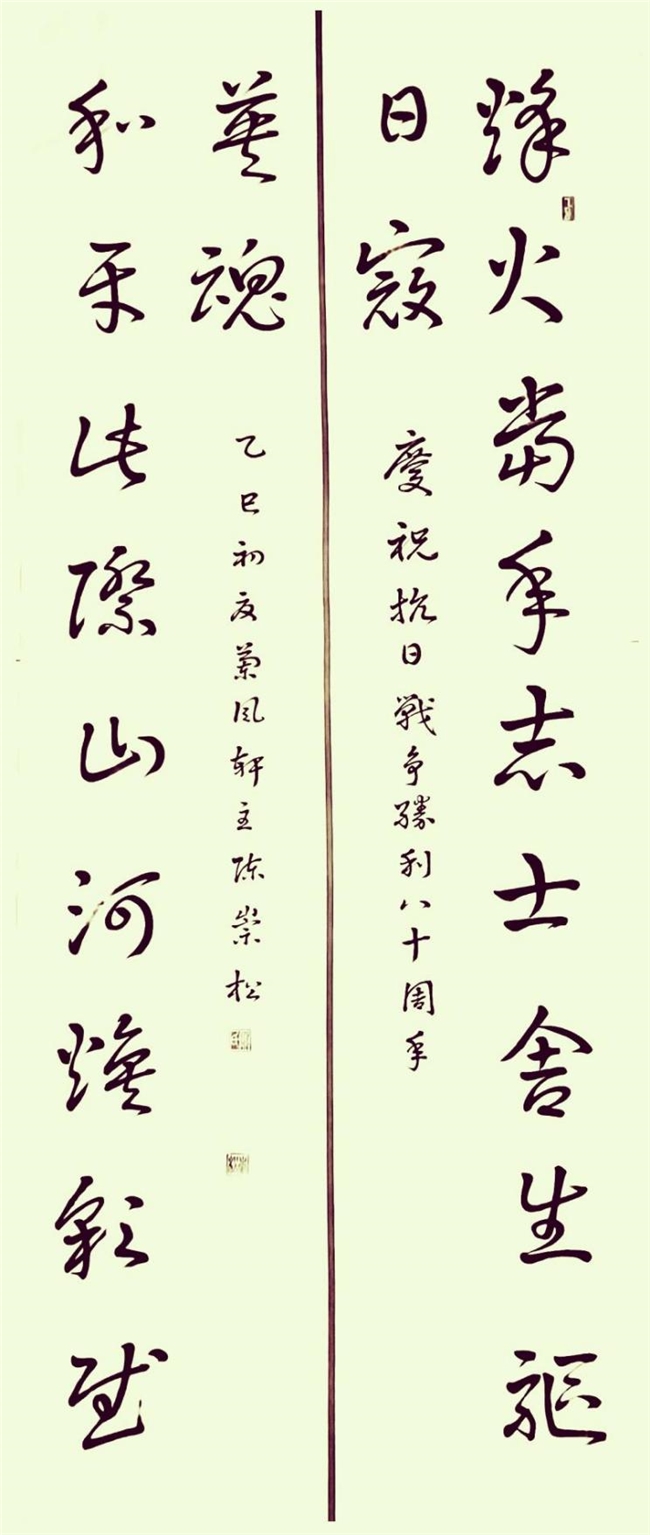 烽火當年志士舍生驅
日寇
慶祝抗日戰爭勝利八十周年
和平此際山河煥彩慰
英魂
乙巳初夏蘭風軒主陳崇松